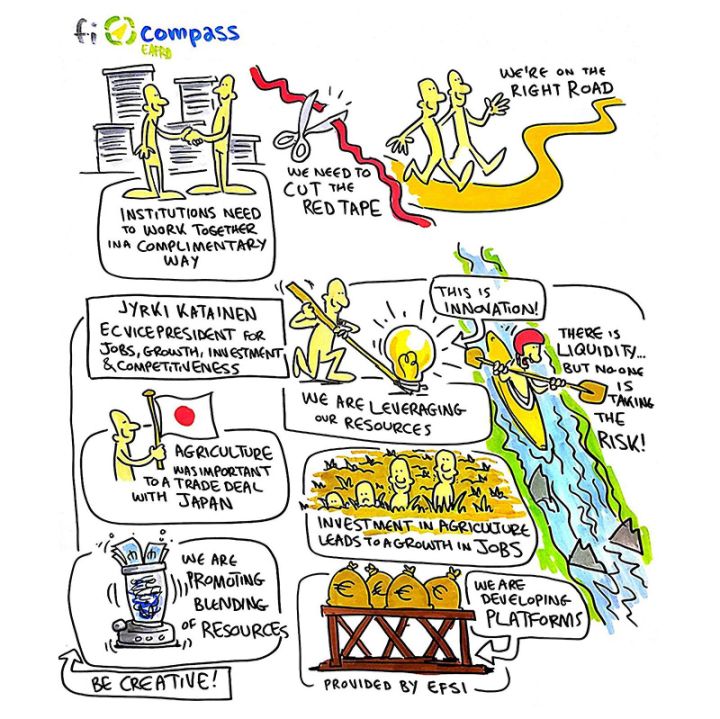 fi compass
EAFRD
INSTITUTIONS NEED
TO WORK TOGETHER
IN A COMPLIMENTARY
WAY
WE NEED TO
CUT THE
RED TAPE
WE'RE ON THE
RIGHT ROAD
JYRKI KATAINEN
EC VICE PRESIDENT FOR
JOBS, GROWTH, INVESTMENT
& COMPETITIVENESS
WE ARE LEVERAGING
OUR RESOURCES
THIS IS
INNOVATION!
THERE IS
LIQUIDITY...
BUT NO ONE
IS
TAKING
THE
RISK!
AGRICULTURE
WAS IMPORTANT
TO A TRADE DEAL
WITH JAPAN
INVESTMENT IN AGRICULTURE
LEADS TO A GROWTH IN JOBS
WE ARE
PROMOTING
BLENDING
OF RESOURCES
BE CREATIVE!
€ € € €
WE ARE
DEVELOPING
PLATFORMS
PROVIDED BY EFSI